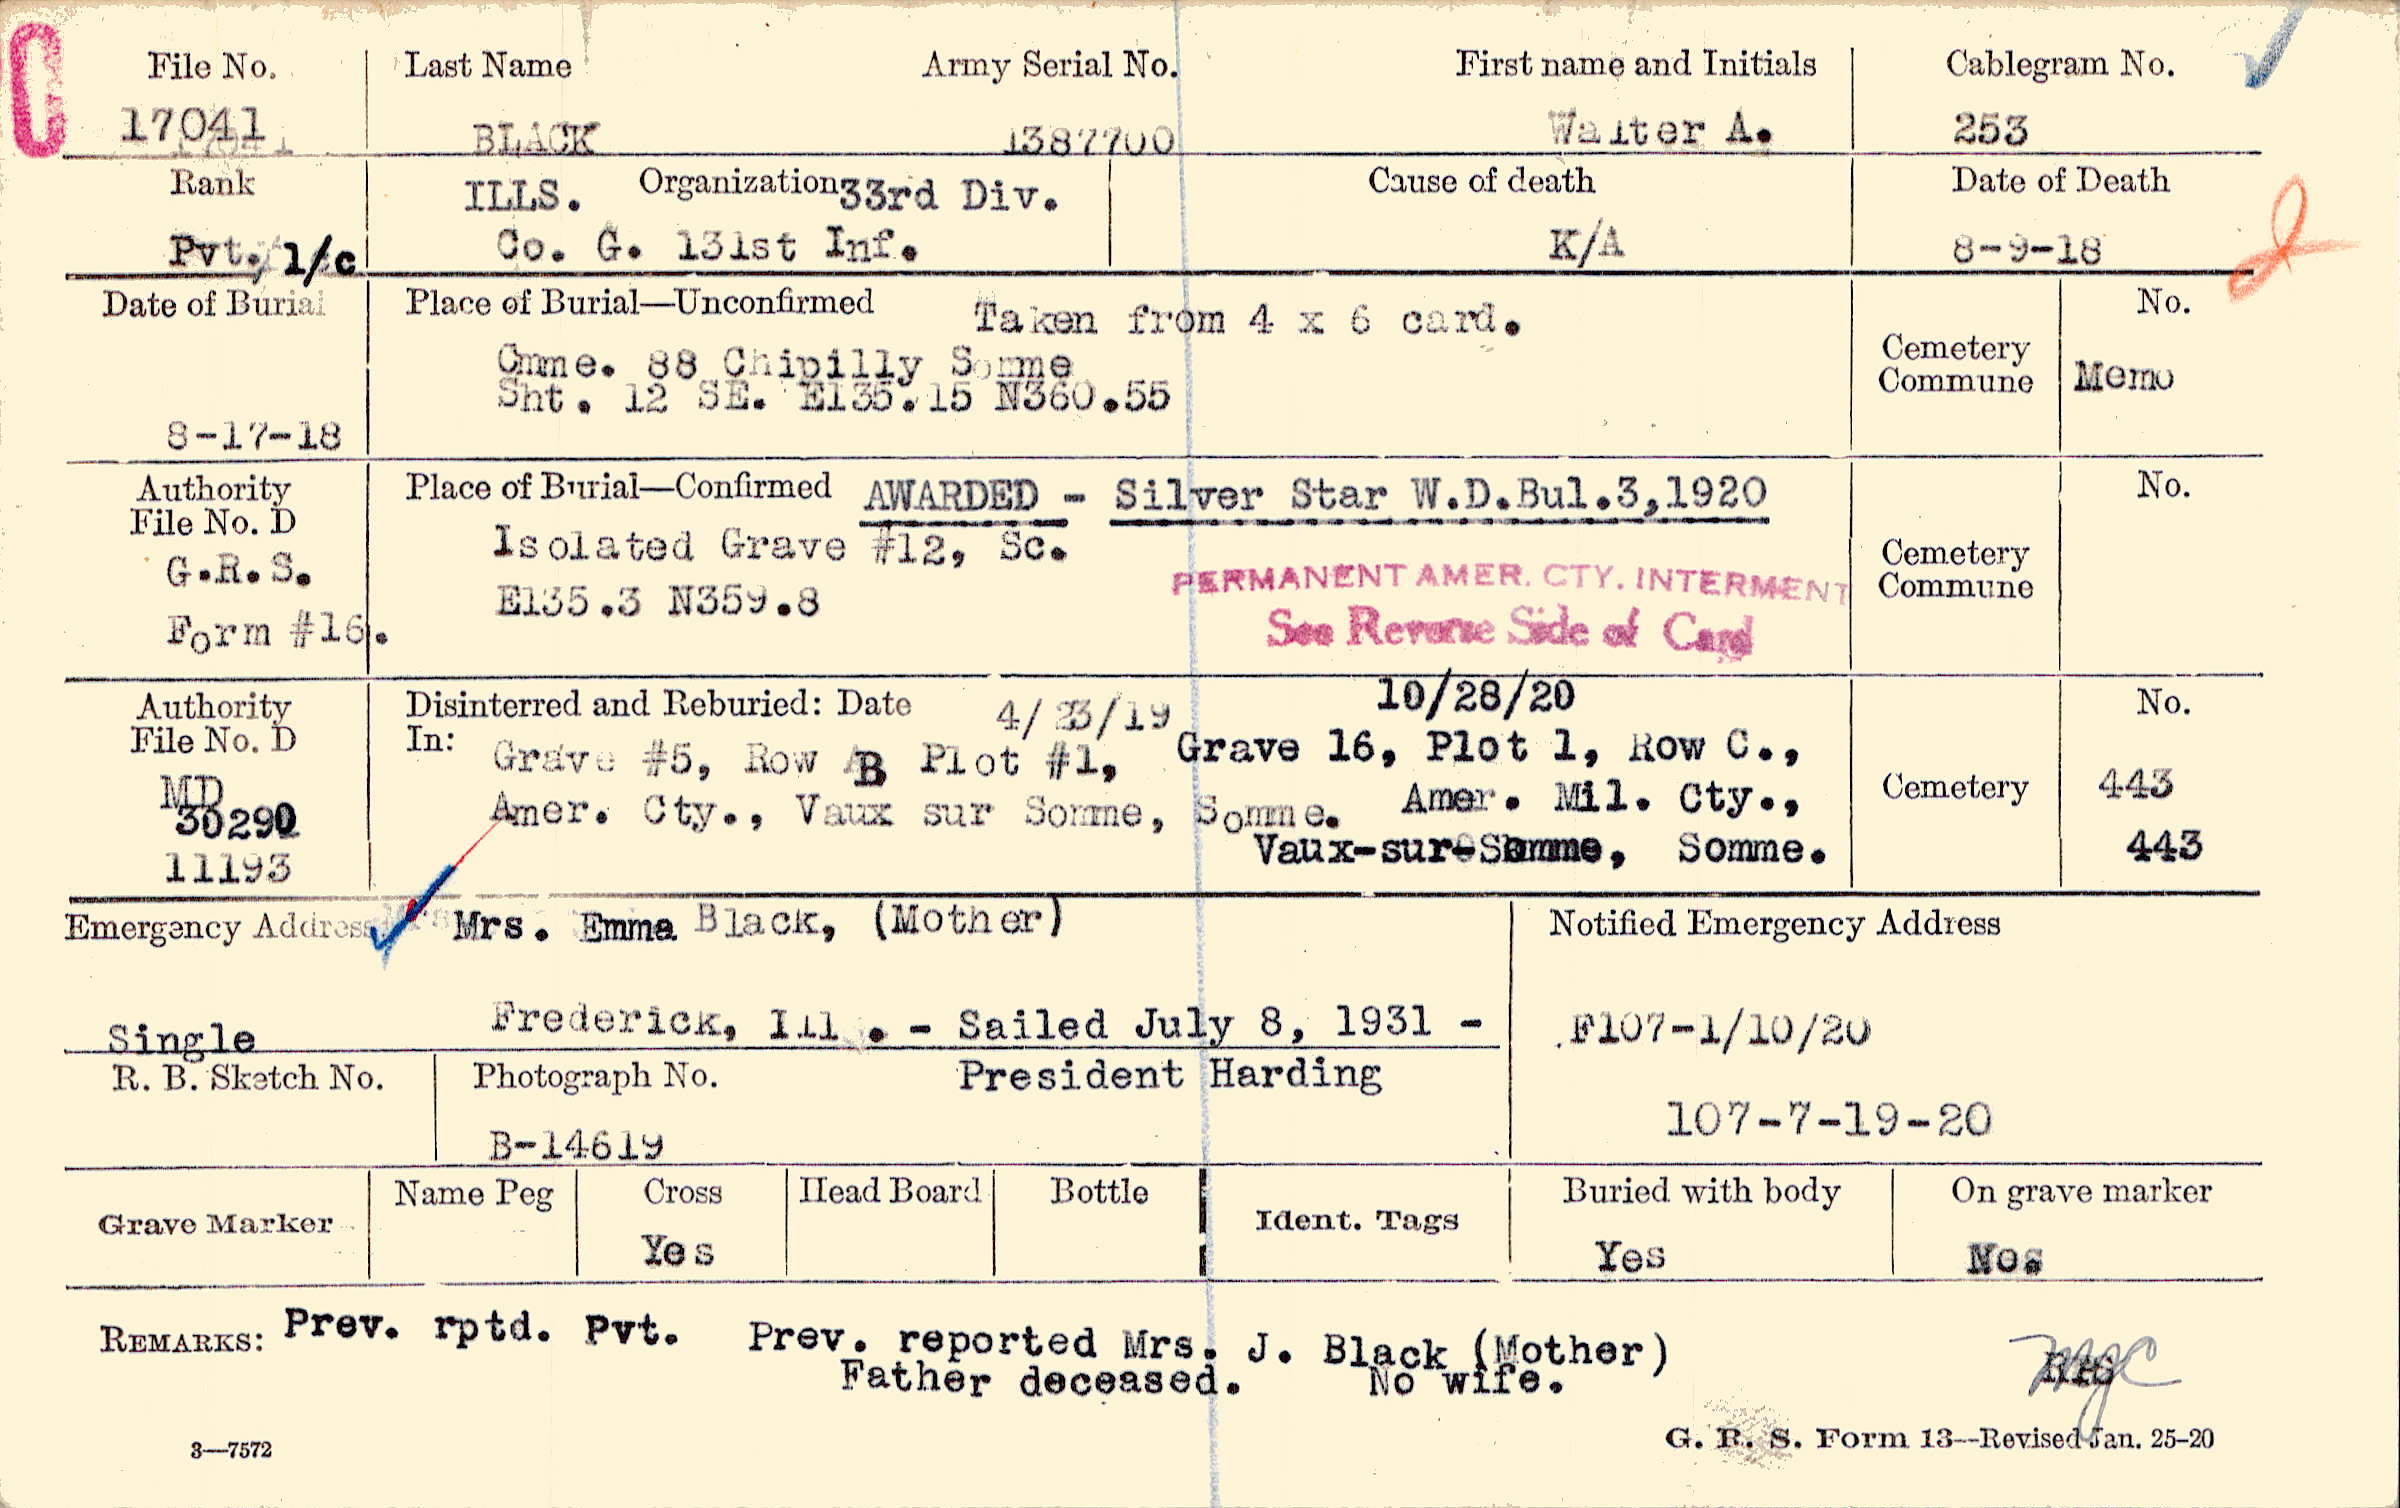 C
File No. Last Name Army Serial No. First name and Initials Cablegram No.
17041 BLACK 1387700 Walter A. 253
Rank ILLS. Organization 33rd Div. Cause of death Date of Death
Pvt., 1/c Co. G. 131st Inf. K/A 8-9-18
Date of Burial Place of Burial—Unconfirmed Taken from 4 x 6 card. No.
Cmme. 88 Chipilly Somme Cemetery
Sht. 12 SE. E135.15 N360.55 Commune Memo
8-17-18
Authority Place of Burial—Confirmed AWARDED - Silver Star W.D.Bul.3,1920 No.
File No. D Isolated Grave #12, Sc. Cemetery
G.R.S. E135.3 N359.8 PERMANENT AMER. CTY. INTERMENT Commune
Form #16. See Reverse Side of Card
Authority Disinterred and Reburied: Date 4/23/19 10/28/20 No.
File No. D In: Grave #5, Row B Plot #1, Grave 16, Plot 1, Row C.,
MD Amer. Cty., Vaux sur Somme, Somme. Amer. Mil. Cty., Cemetery 443
30290 Vaux-sur-Somme, Somme. 443
11193
Emergency Address Mrs. Emma Black, (Mother) Notified Emergency Address
Single Frederick, Ill. - Sailed July 8, 1931 - F107-1/10/20
R. B. Sketch No. Photograph No. President Harding
B-14619 107-7-19-20
Grave Marker Name Peg Cross Head Board Bottle Ident. Tags Buried with body On grave marker
Yes Yes
REMARKS: Prev. rptd. Pvt. Prev. reported Mrs. J. Black (Mother)
Father deceased. No wife.
3—7572 G. R. S. Form 13—Revised Jan. 25-20